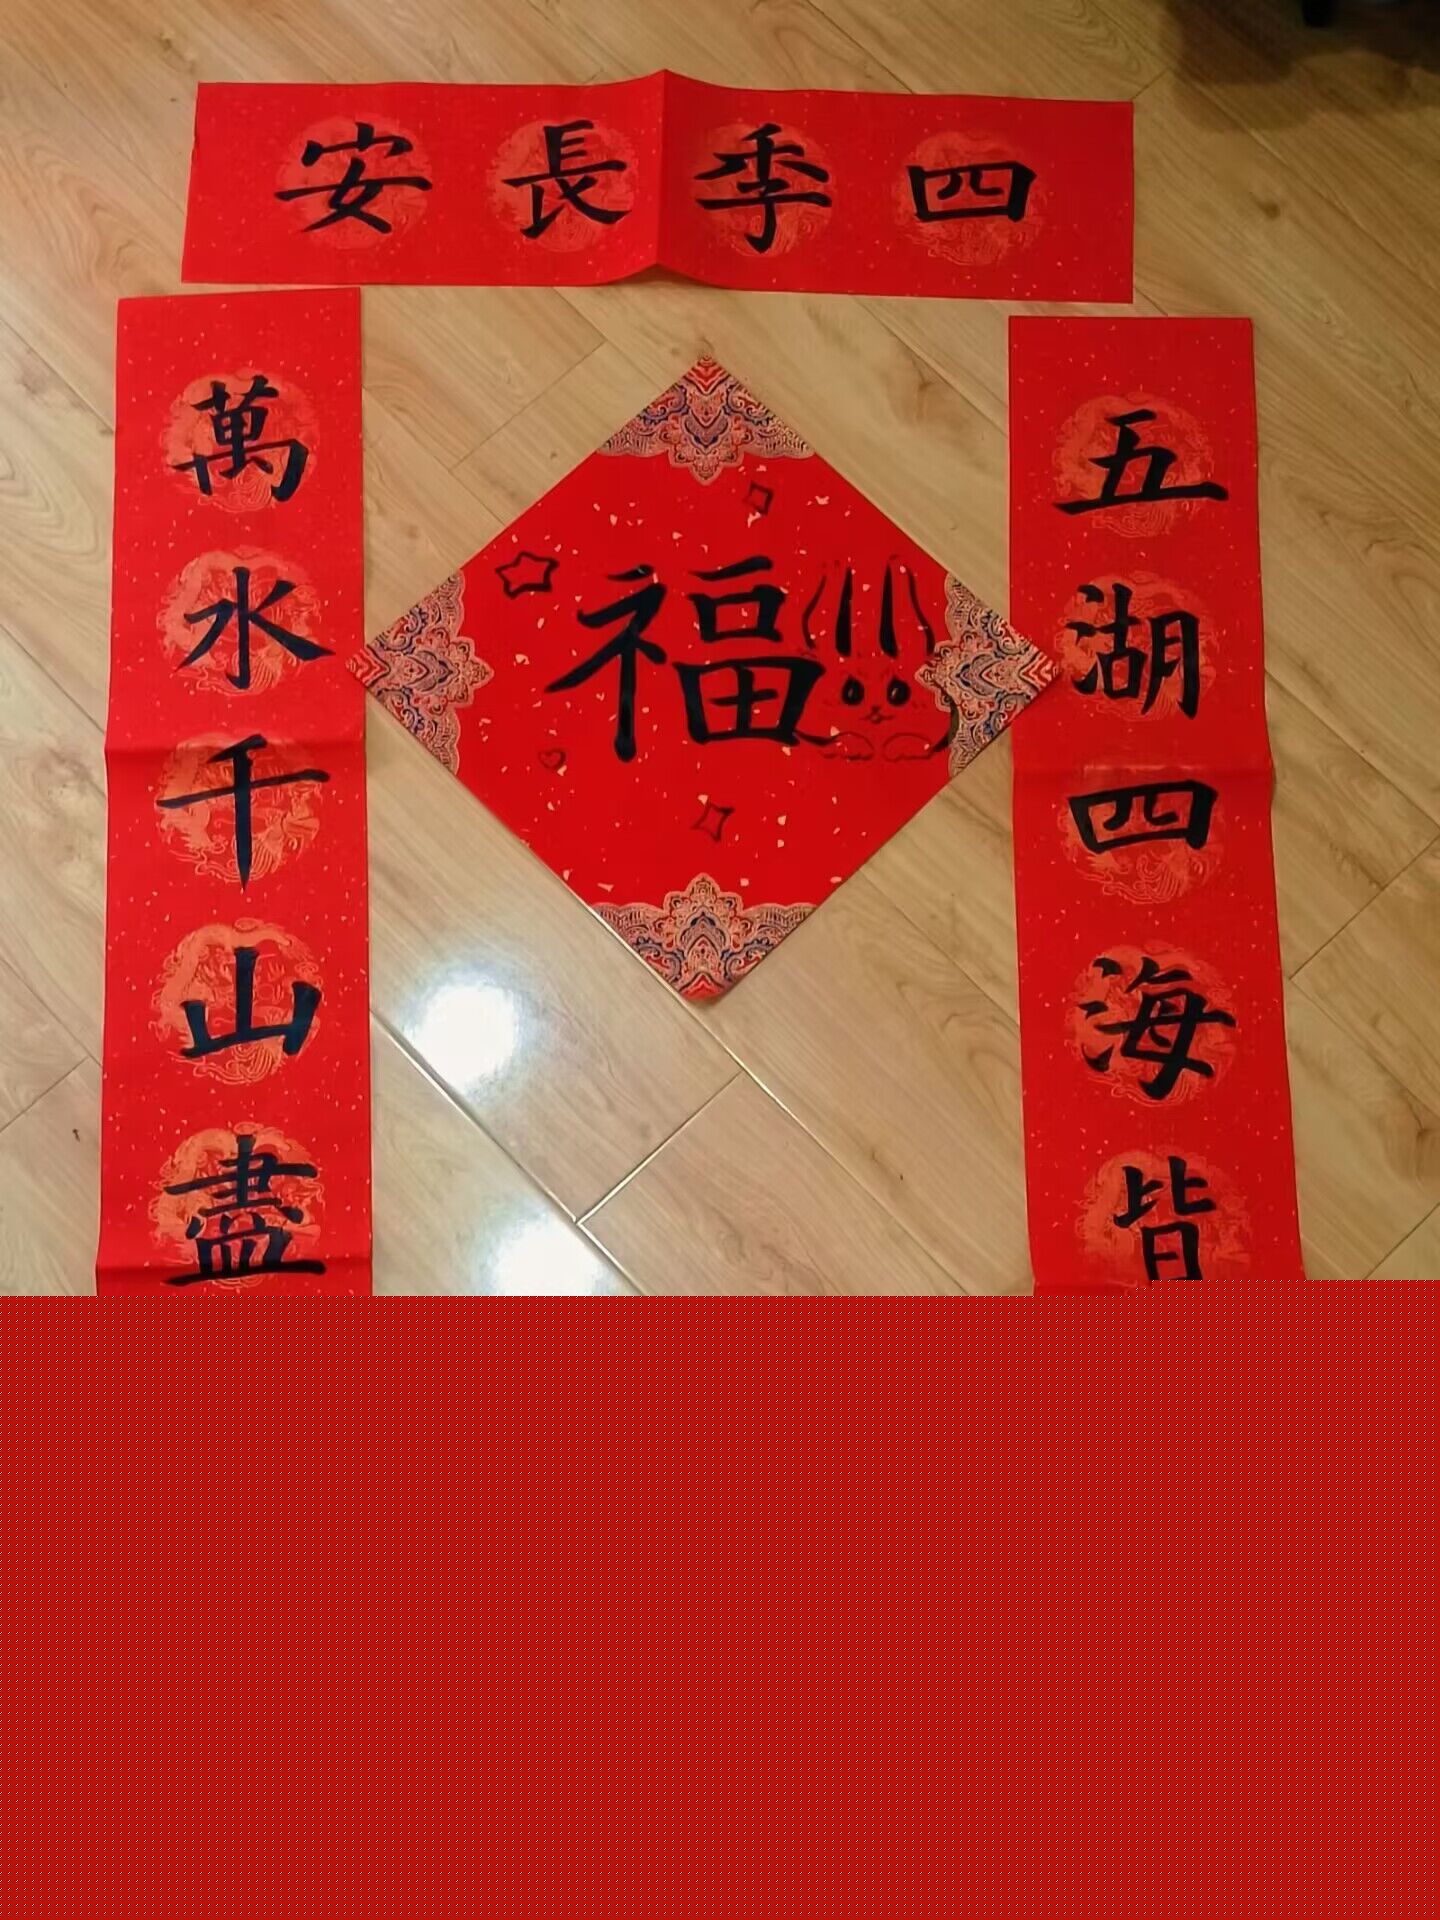 四季長安
五湖四海皆
萬水千山盡
福